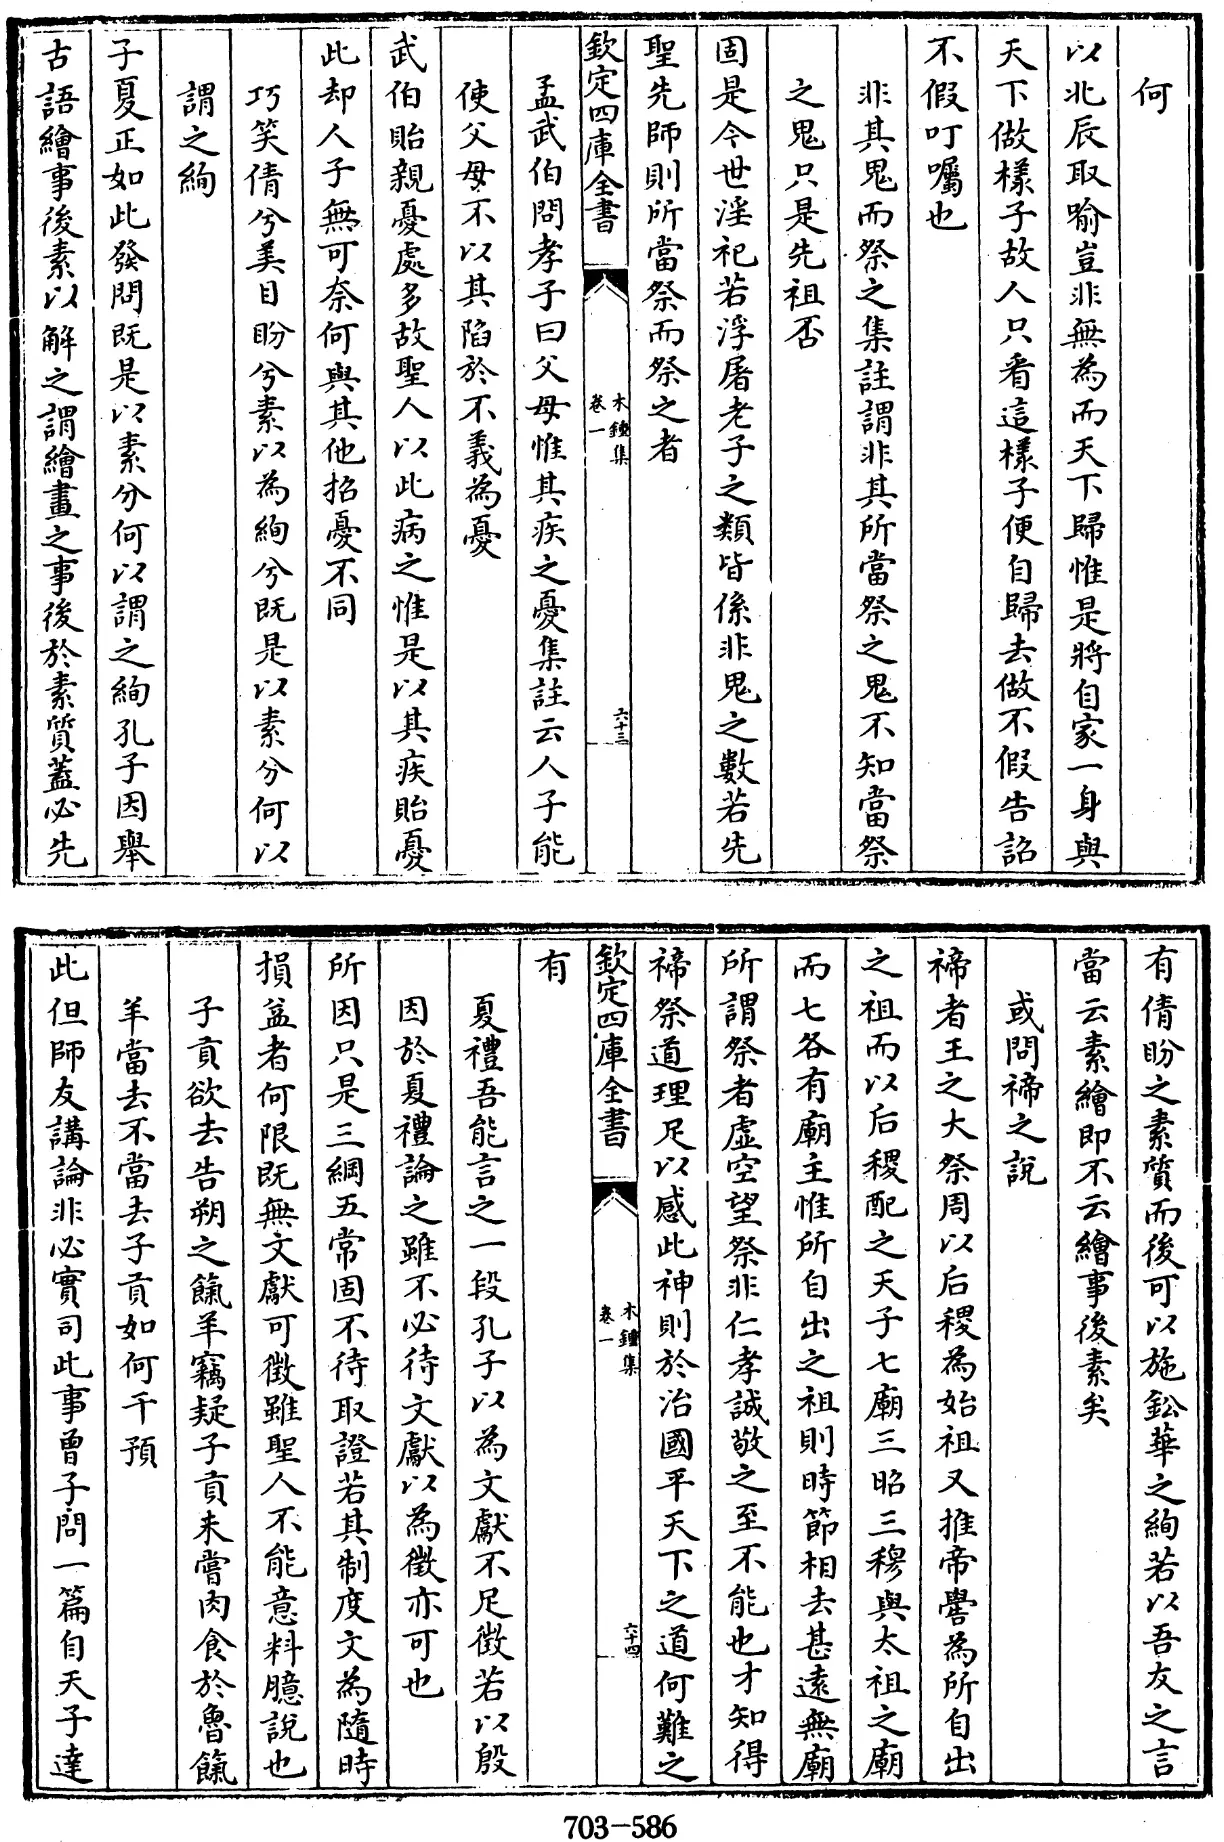 何
以北辰取喻豈非無為而天下歸惟是將自家一身與
天下做樣子故人只看這樣子便自歸去做不假告詔
不假叮囑也
非其鬼而祭之集註謂非其所當祭之鬼不知當祭
之鬼只是先祖否
固是今世淫祀若浮屠老子之類皆係非鬼之數若先
聖先師則所當祭而祭之者
欽定四庫全書
木鍾集
卷一
六十三
孟武伯問孝子曰父母惟其疾之憂集註云人子能
使父母不以其陷於不義為憂
武伯貽親憂處多故聖人以此病之惟是以其疾貽憂
此却人子無可奈何與其他招憂不同
巧笑倩兮美目盼兮素以為絢兮既是以素分何以
謂之絢
子夏正如此發問既是以素分何以謂之絢孔子因舉
古語繪事後素以解之謂繪畫之事後於素質蓋必先
有倩盼之素質而後可以施鉛華之絢若以吾友之言
當云素繪即不云繪事後素矣
或問禘之說
禘者王之大祭周以后稷為始祖又推帝嚳為所自出
之祖而以后稷配之天子七廟三昭三穆與太祖之廟
而七各有廟主惟所自出之祖則時節相去甚遠無廟
所謂祭者虛空望祭非仁孝誠敬之至不能也才知得
禘祭道理足以感此神則於治國平天下之道何難之
欽定四庫全書
木鍾集
卷一
六十四
有
夏禮吾能言之一段孔子以為文獻不足徵若以殷
因於夏禮論之雖不必待文獻以為徵亦可也
所因只是三綱五常固不待取證若其制度文為隨時
損益者何限既無文獻可徵雖聖人不能意料臆說也
子貢欲去告朔之餼羊竊疑子貢未嘗肉食於魯餼
羊當去不當去子貢如何干預
此但師友講論非必實司此事曾子問一篇自天子達
703-586